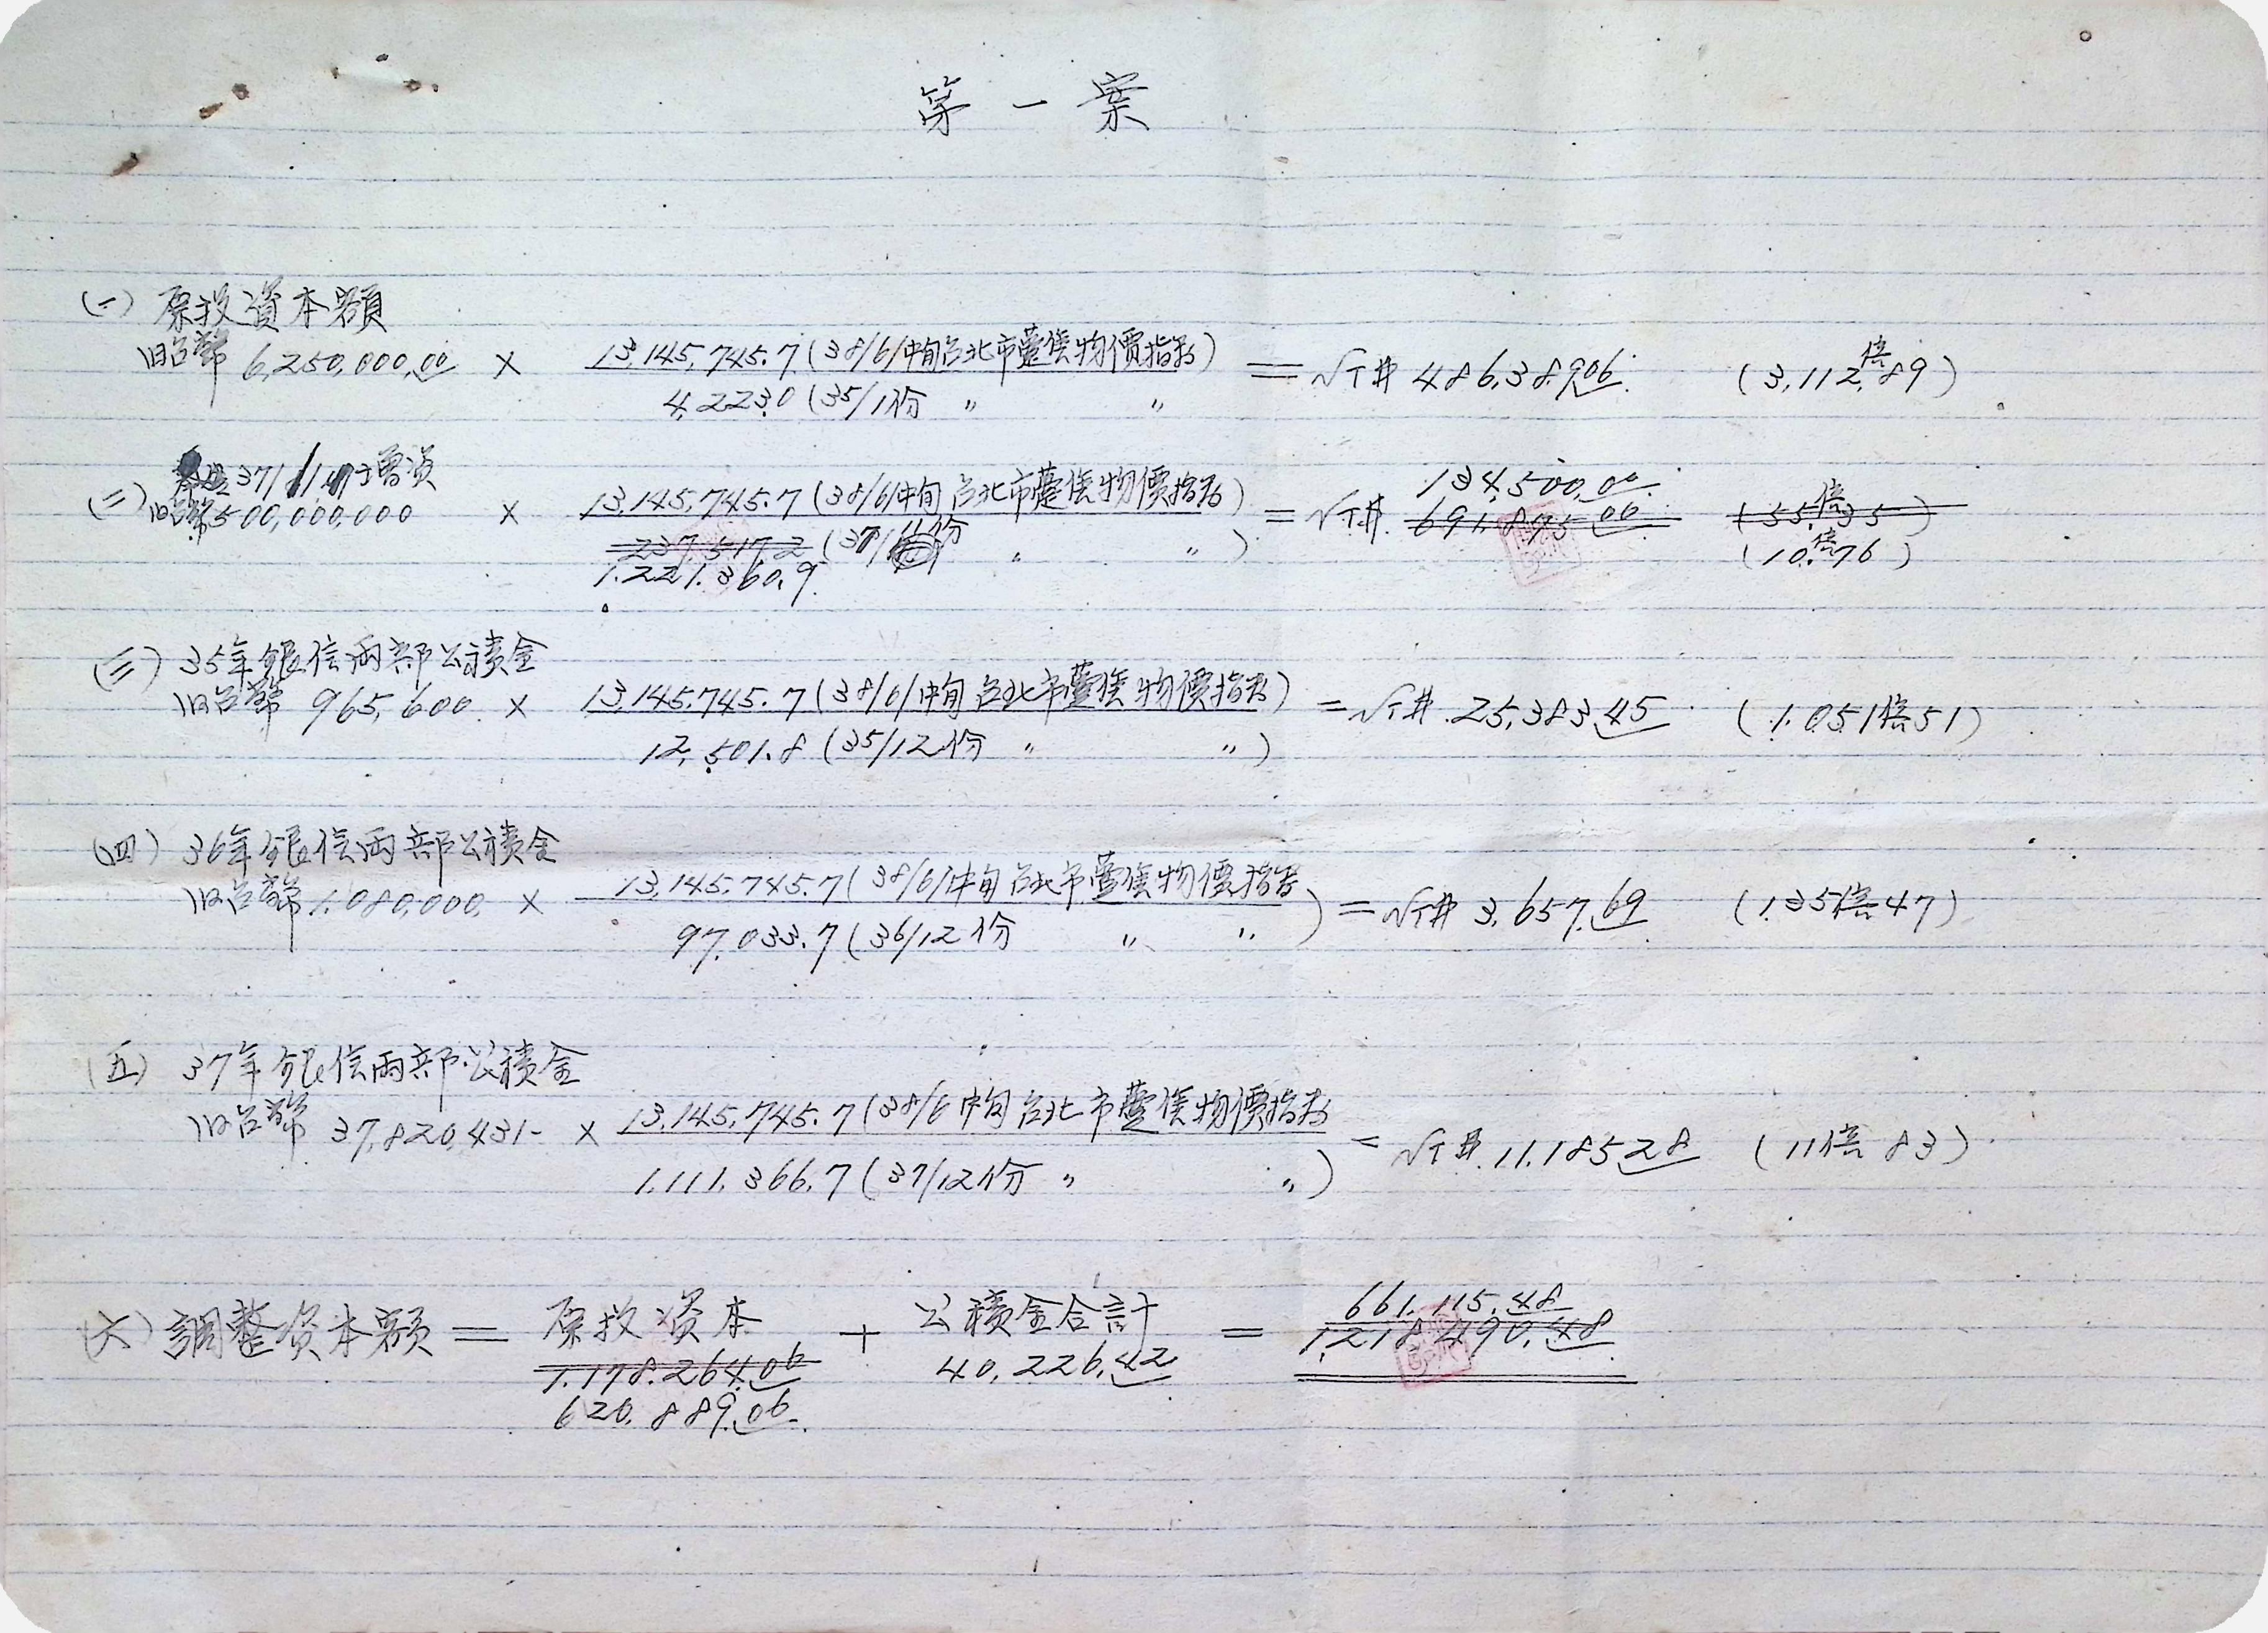 第一案
(一) 原投資本額
旧台幣 6,250,000.00 × 13,145,745.7 (38/6/中旬台北市躉售物價指数) = NT# 486,389.06 (3,112倍89)
4,223.0 (35/1份 〃 〃
(二) 37/11/ 增資
旧台幣500,000,000 × 13,145,745.7 (38/6/中旬台北市躉售物價指数) = NT#. 134,500.00
691,875.00 (55倍35)
237,517.2 (37/11份 〃 〃) (10倍76)
1,221,360.9
(三) 35年銀信兩部公積金
旧台幣 965,600. × 13,145,745.7 (38/6/中旬台北市躉售物價指数) = NT#. 25,383.45 (1,051倍51)
12,501.8 (35/12份 〃 〃)
(四) 36年銀信兩部公積金
旧台幣 1,080,000. × 13,145,745.7 (38/6/中旬台北市躉售物價指数 = NT# 3,657.69 (135倍47)
97,033.7 (36/12份 〃 〃)
(五) 37年銀信兩部公積金
旧台幣 37,820,431- × 13,145,745.7 (38/6中旬台北市躉售物價指数 = NT#. 11,185.28 (11倍83)
1,111,366.7 (37/12份 〃 〃)
(六) 調整資本額 = 原投資本 + 公積金合計 = 661,115.48
1,178,264.06 40,226.42 1,218,490.48
620,889.06